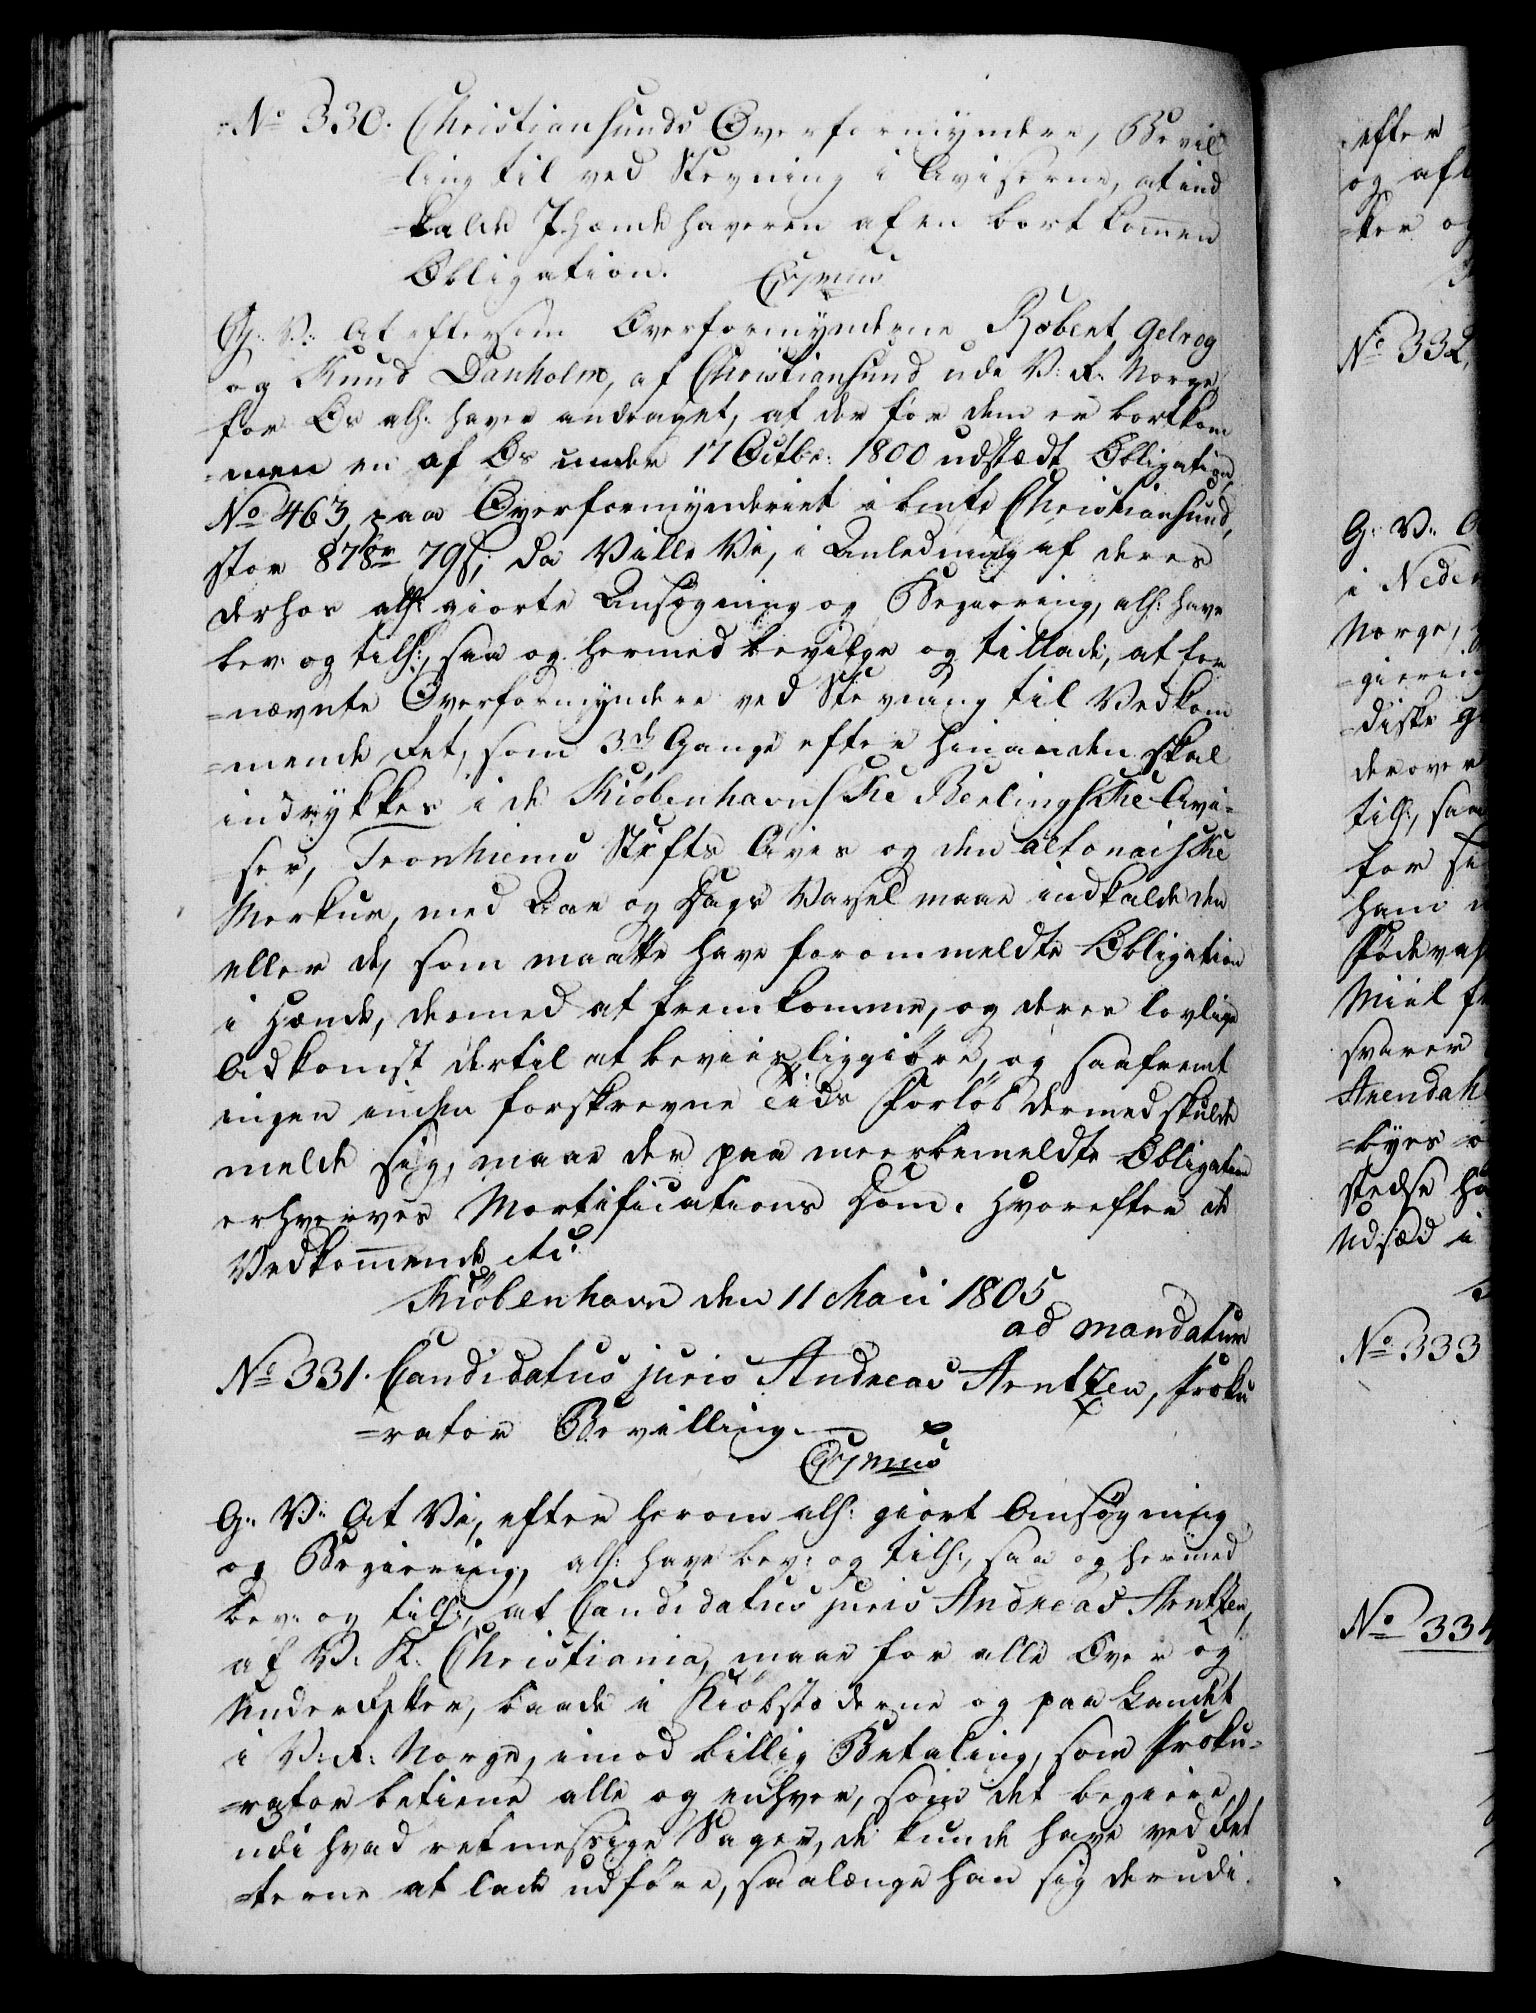 No 330. Christiansunds Overformyndere, Bevil
=ling til ved Stevning i Aviserne, at ind
=kalde Ihændehaveren af en bortkommen
Obligation. Cymus
G: V: At eftersom Overformynderne Robert Gelrog
og Knud Danholm, af Christiansund udi V: R: Norge,
for Os alh: have andraget, at der for dem er bortkom
=men en af Os under 17 Octbr: 1800 udstædt Obligation,
No 463, paa Overformynderiet i bemte Christiansund,
stor 878 rdr 79 s; da Ville Vi, i Anledning af deres
derhos alh: giorte Ansøgning og Begiering, alh: have
bev: og tilh:, saa og hermed bevilge og tillade, at for
=nævnte Overformyndere ved Stevning til Vedkom
=mende Ret, som 3de Gange efter hinanden skal
indrykkes i de Kiøbenhavnske Berlingske Avi=
ser, Tronhiems Stifts Avis og den altonaiske
Merkur, med Aar og Dags Varsel maae indkalde den
eller de, som maatte have forommeldte Obligation
i Hænde, dermed at fremkomme, og deres lovlige
Adkomst dertil at beviisliggiøre, og saafremt
ingen inden forskrevne Tids Forløb dermed skulde
melde sig, maae der paa meerbemeldte Obligation
erhverves Mortifications Dom. Hvorefter de
Vedkommende etc:
Kiøbenhavn den 11 Maii 1805
ad mandatum
No 331. Candidatus juris Andreas Arntzen, Proku
=rator Bevilling.
Cymus
G: V: At Vi, efter herom alh: giort Ansøgning
og Begiering, alh: have bev: og tilh:, saa og hermed
bev: og tilh:, at Candidatus juris Andreas Arntzen,
af V: K: Christiania, maae for alle Over og
Underretter, baade i Kiøbstæderne og paa Landet
i V: R: Norge, imod billig Betaling, som Proku=
=rator betiene alle og enhver, som det begiere,
udi hvad retmessige Sager, de kunde have ved Ret
=terne at lade udføre, saalænge han sig derudi
efter
og af
=ker og
No 332,
G: V: A
i Neden
Norge,
=giering
=diske g
derover
tilh:, saa
for si
ham
Miil f
svarer
Arendahl
=byes
stedse ha
Udsæd i
No 333
No 334